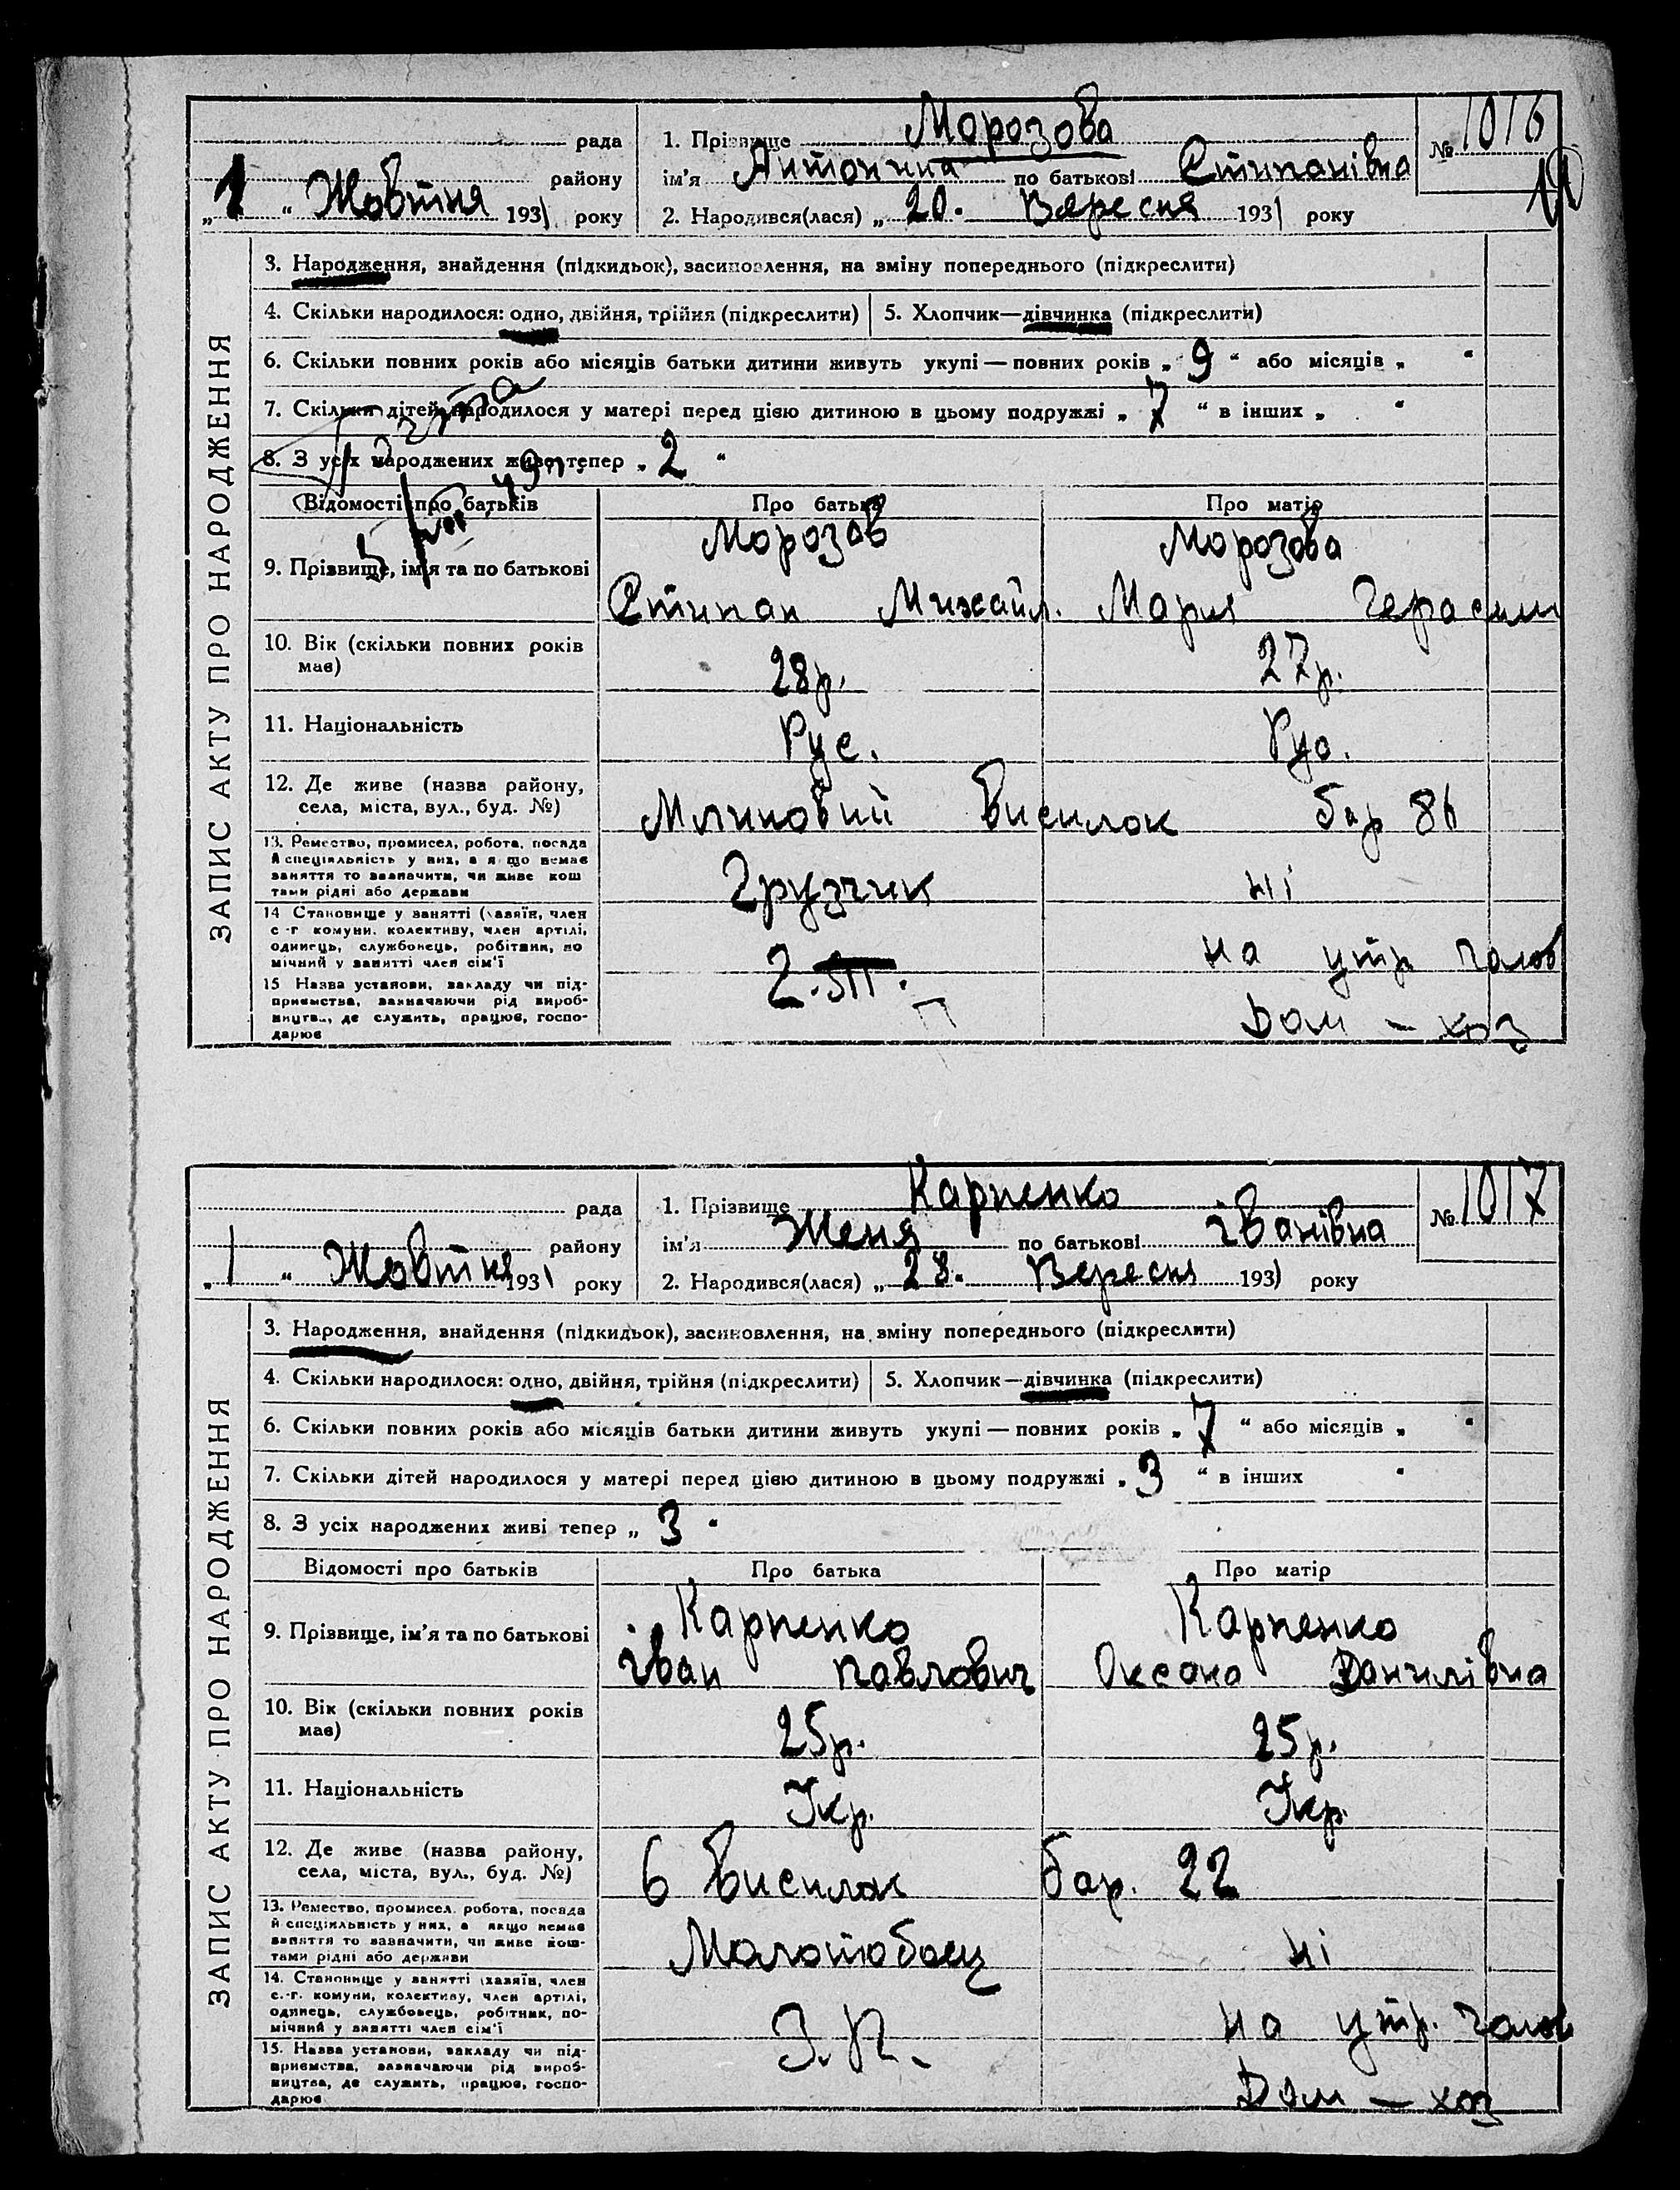 рада
району
„1“ Жовтня 1931 року
1. Прізвище Морозова
ім’я Антонина по батькові Стипанівна
2. Народився(лася) „20. Вересня 1931 року
№ 1016
ЗАПИС АКТУ ПРО НАРОДЖЕННЯ
3. Народження, знайдення (підкидьок), засиновлення, на зміну попереднього (підкреслити)
4. Скільки народилося: одно, двійня, трійня (підкреслити)
5. Хлопчик—дівчинка (підкреслити)
6. Скільки повних років або місяців батьки дитини живуть укупі — повних років „9“ або місяців „ “
7. Скільки дітей народилося у матері перед цією дитиною в цьому подружжі „7“ в інших „ “
8. З усіх народжених живі тепер „2“
Відомості про батьків
Про батька
Про матір
9. Прізвище, ім’я та по батькові
Морозов
Стипан Михайл.
Морозова
Мария Герасим
10. Вік (скільки повних років має)
28р.
27р.
11. Національність
Рус.
Рус.
12. Де живе (назва району, села, міста, вул., буд. №)
Млиновий висилок бар 86
13. Ремество, промисел, робота, посада й спеціяльність у них, а якщо немає заняття то зазначити, чи живе коштами рідні або держави
Грузчик
ні
14 Становище у занятті (хазяїн, член с.-г комуни, колективу, член артілі, одинець, службовець, робітник, помічний у занятті член сім’ї
на утр. голов
15 Назва установи, закладу чи підприємства, зазначаючи рід виробництва, де служить, працює, господарює
Дом — хоз
рада
району
„1“ Жовтня 1931 року
1. Прізвище Карпенко
ім’я Женя по батькові іванівна
2. Народився(лася) „28. Вересня 1931 року
№ 1017
ЗАПИС АКТУ ПРО НАРОДЖЕННЯ
3. Народження, знайдення (підкидьок), засиновлення, на зміну попереднього (підкреслити)
4. Скільки народилося: одно, двійня, трійня (підкреслити)
5. Хлопчик—дівчинка (підкреслити)
6. Скільки повних років або місяців батьки дитини живуть укупі — повних років „7“ або місяців „ “
7. Скільки дітей народилося у матері перед цією дитиною в цьому подружжі „3“ в інших “
8. З усіх народжених живі тепер „3“
Відомості про батьків
Про батька
Про матір
9. Прізвище, ім’я та по батькові
Карпенко
іван Павлович
Карпенко
Оксана Данилівна
10. Вік (скільки повних років має)
25р.
25р.
11. Національність
Укр.
Укр.
12. Де живе (назва району, села, міста, вул., буд. №)
6 висилок бар. 22
13. Ремество, промисел, робота, посада й спеціяльність у них, а якщо немає заняття то зазначити, чи живе коштами рідні або держави
Молотобоец
ні
14. Становище у занятті (хазяїн, член с.-г. комуни, колективу, член артілі, одинець, службовець, робітник, помічний у занятті член сім’ї
на утр. голов
15. Назва установи, закладу чи підприємства, зазначаючи рід виробництва, де служить, працює, господарює
Дом — хоз